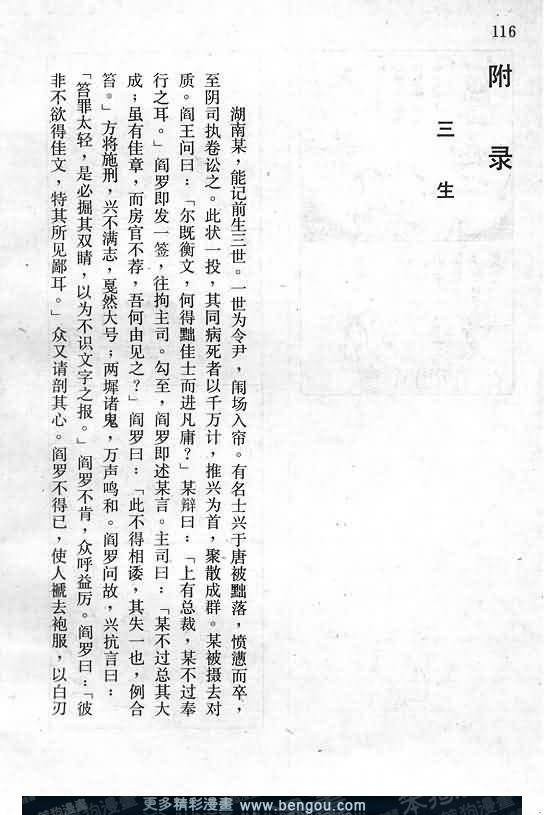 116
附录
三生
湖南某，能记前生三世。一世为令尹，闱场入帘。有名士兴于唐被黜落，愤懑而卒，
至阴司执卷讼之。此状一投，其同病死者以千万计，推兴为首，聚散成群。某被摄去对
质。阎王问曰：「尔既衡文，何得黜佳士而进凡庸？」某辩曰：「上有总裁，某不过奉
行之耳。」阎罗即发一签，往拘主司。勾至，阎罗即述某言。主司曰：「某不过总其大
成；虽有佳章，而房官不荐，吾何由见之？」阎罗曰：「此不得相诿，其失一也，例合
笞。」方将施刑，兴不满志，戛然大号；两墀诸鬼，万声鸣和。阎罗问故，兴抗言曰：
「笞罪太轻，是必掘其双睛，以为不识文字之报。」阎罗不肯，众呼益厉。阎罗曰：「彼
非不欲得佳文，特其所见鄙耳。」众又请剖其心。阎罗不得已，使人褫去袍服，以白刃
更多精彩漫畫 www.bengou.com